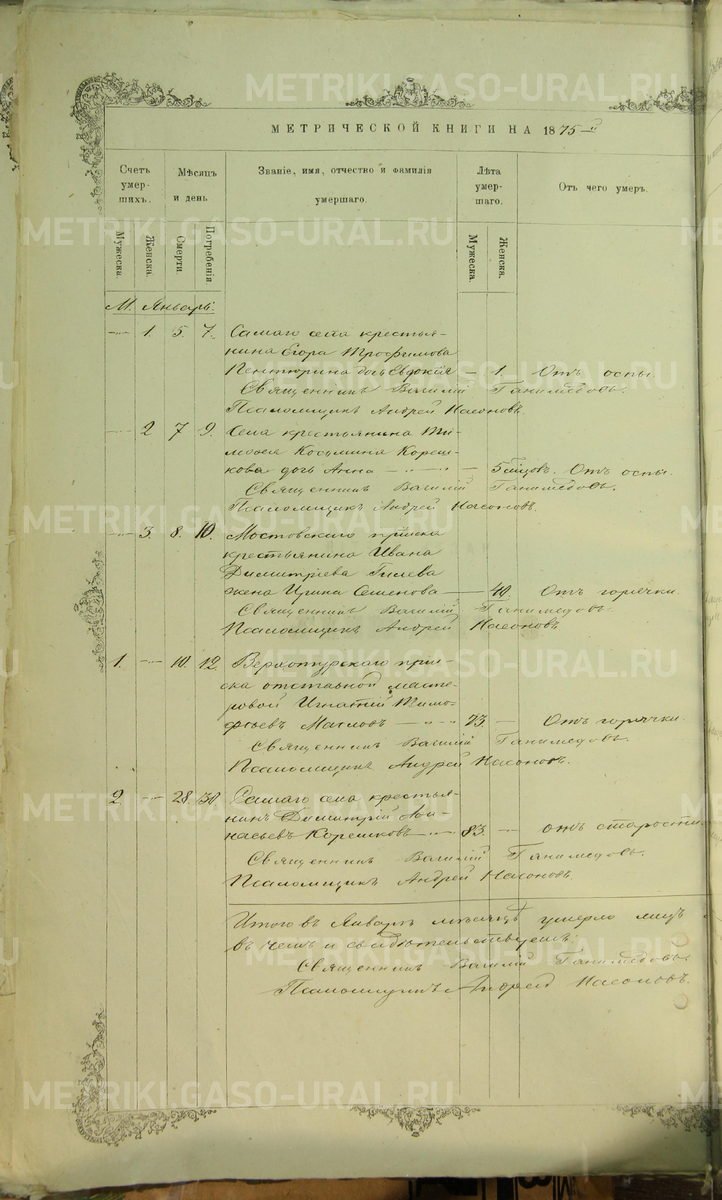 METRIKI.GASO-URAL.RU
МЕТРИЧЕСКОЙ КНИГИ НА 1875
Счетъ умершихъ. Мѣсяцъ и день Званіе, имя, отчество и фамилія умершаго. Лѣта умершаго. Отъ чего умеръ.
Мужеска. Женска. Смерти Погребенія Мужеска. Женска.
М. Январь:
1. 5. 7. Самаго села крестья-
нина Егора Трофимова
Пентюрина дочь Евдокія — 1. Отъ оспы.
Священникъ Василій Ганимедовъ.
Псаломщикъ Андрей Насоновъ.
2 7 9. Села крестьянина Ти-
мофея Косьмина Кореш-
кова дочь Анна — 5 мѣсяцев. Отъ оспы
Священникъ Василій Ганимедовъ.
Псаломщикъ Андрей Насоновъ.
3. 8. 10. Мостовскаго пріиска
крестьянина Ивана
Димитріева Гилева
жена Ирина Семенова — 40. Отъ горячки.
Священникъ Василій Ганимедовъ.
Псаломщикъ Андрей Насоновъ
1. 10. 12. Верхотурскаго прі-
иска отставной масте-
ровой Игнатій Тимо-
фѣевъ Масловъ — 73. — Отъ горячки.
Священникъ Василій Ганимедовъ.
Псаломщикъ Андрей Насоновъ.
2 28. 30 Самаго села крестья-
нинъ Димитрій Афа-
насьевъ Корешковъ 83. — отъ старости.
Священникъ Василій Ганимедовъ.
Псаломщикъ Андрей Насоновъ
Итого въ Январѣ мѣсяцѣ умерло лицъ
въ чемъ и свидѣтельствуемъ:
Священникъ Василій Ганимедовъ
Псаломщикъ Андрей Насоновъ.